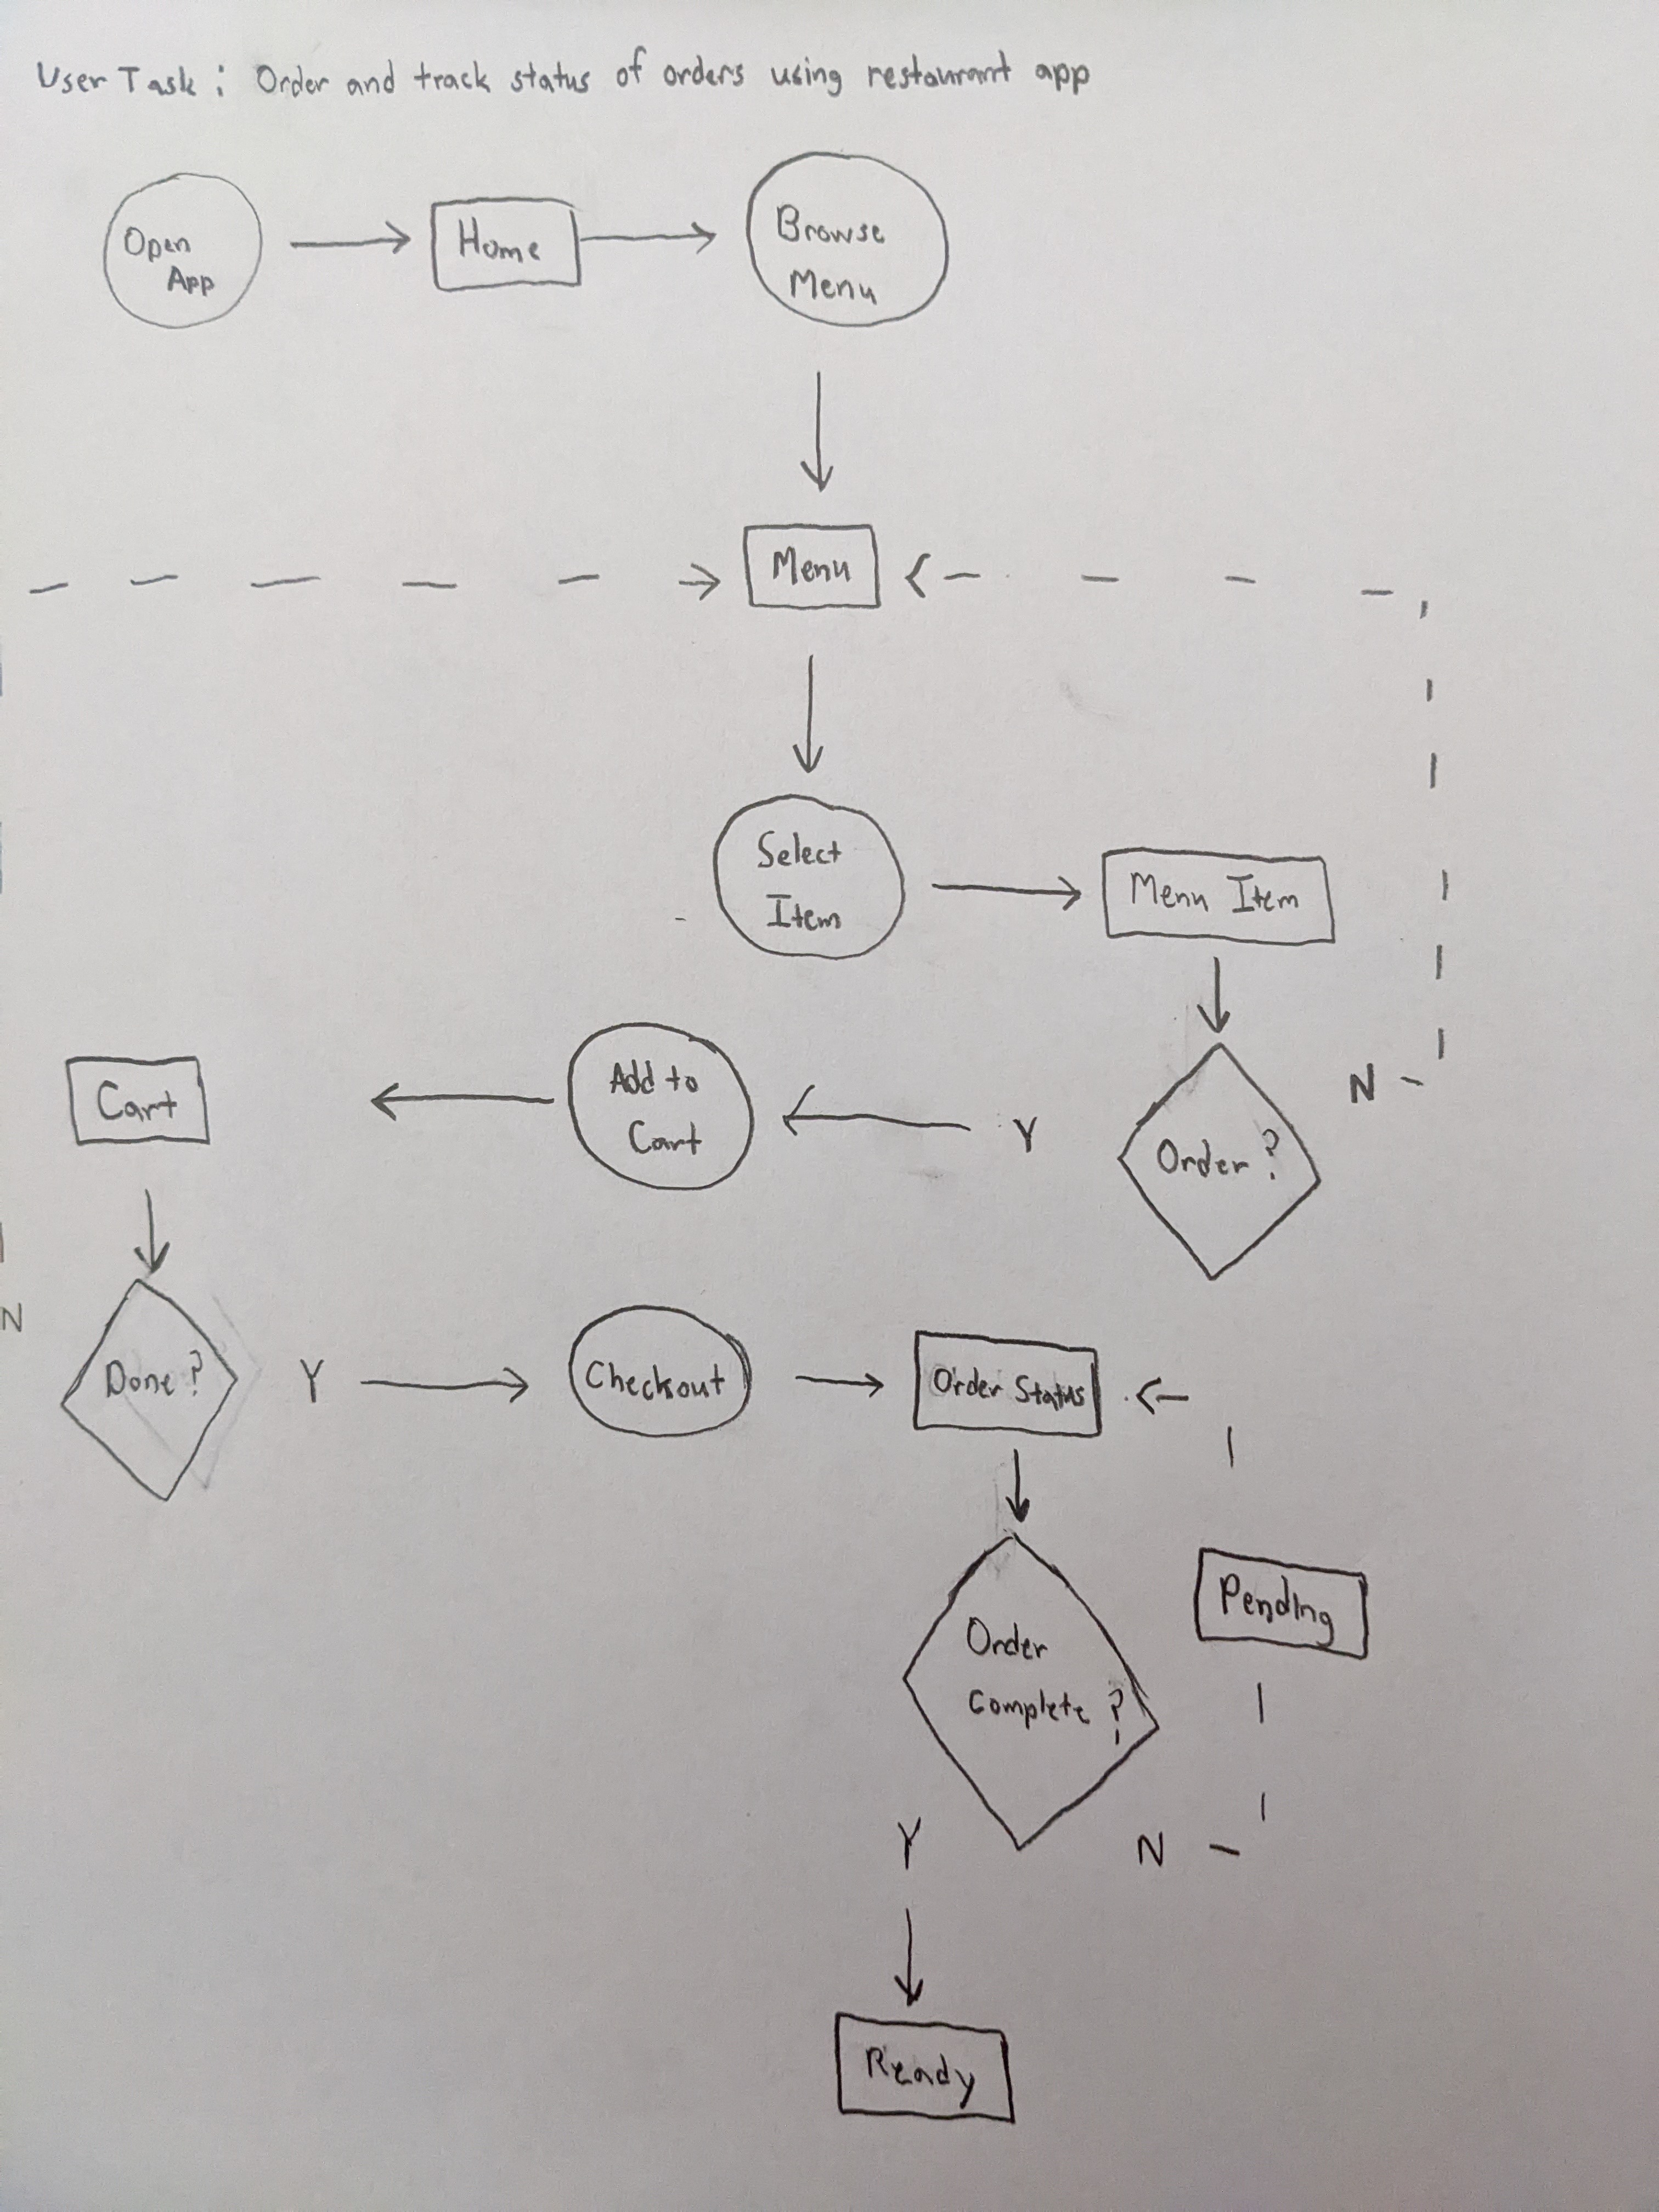 User Task: Order and track status of orders using restaurant app
Open
App
Home
Browse
Menu
Menu
Select
Item
Menu Item
Cart
Add to
Cart
Y
Order?
N
N
Done?
Y
Checkout
Order Status
Order
Complete?
Pending
Y
N
Ready